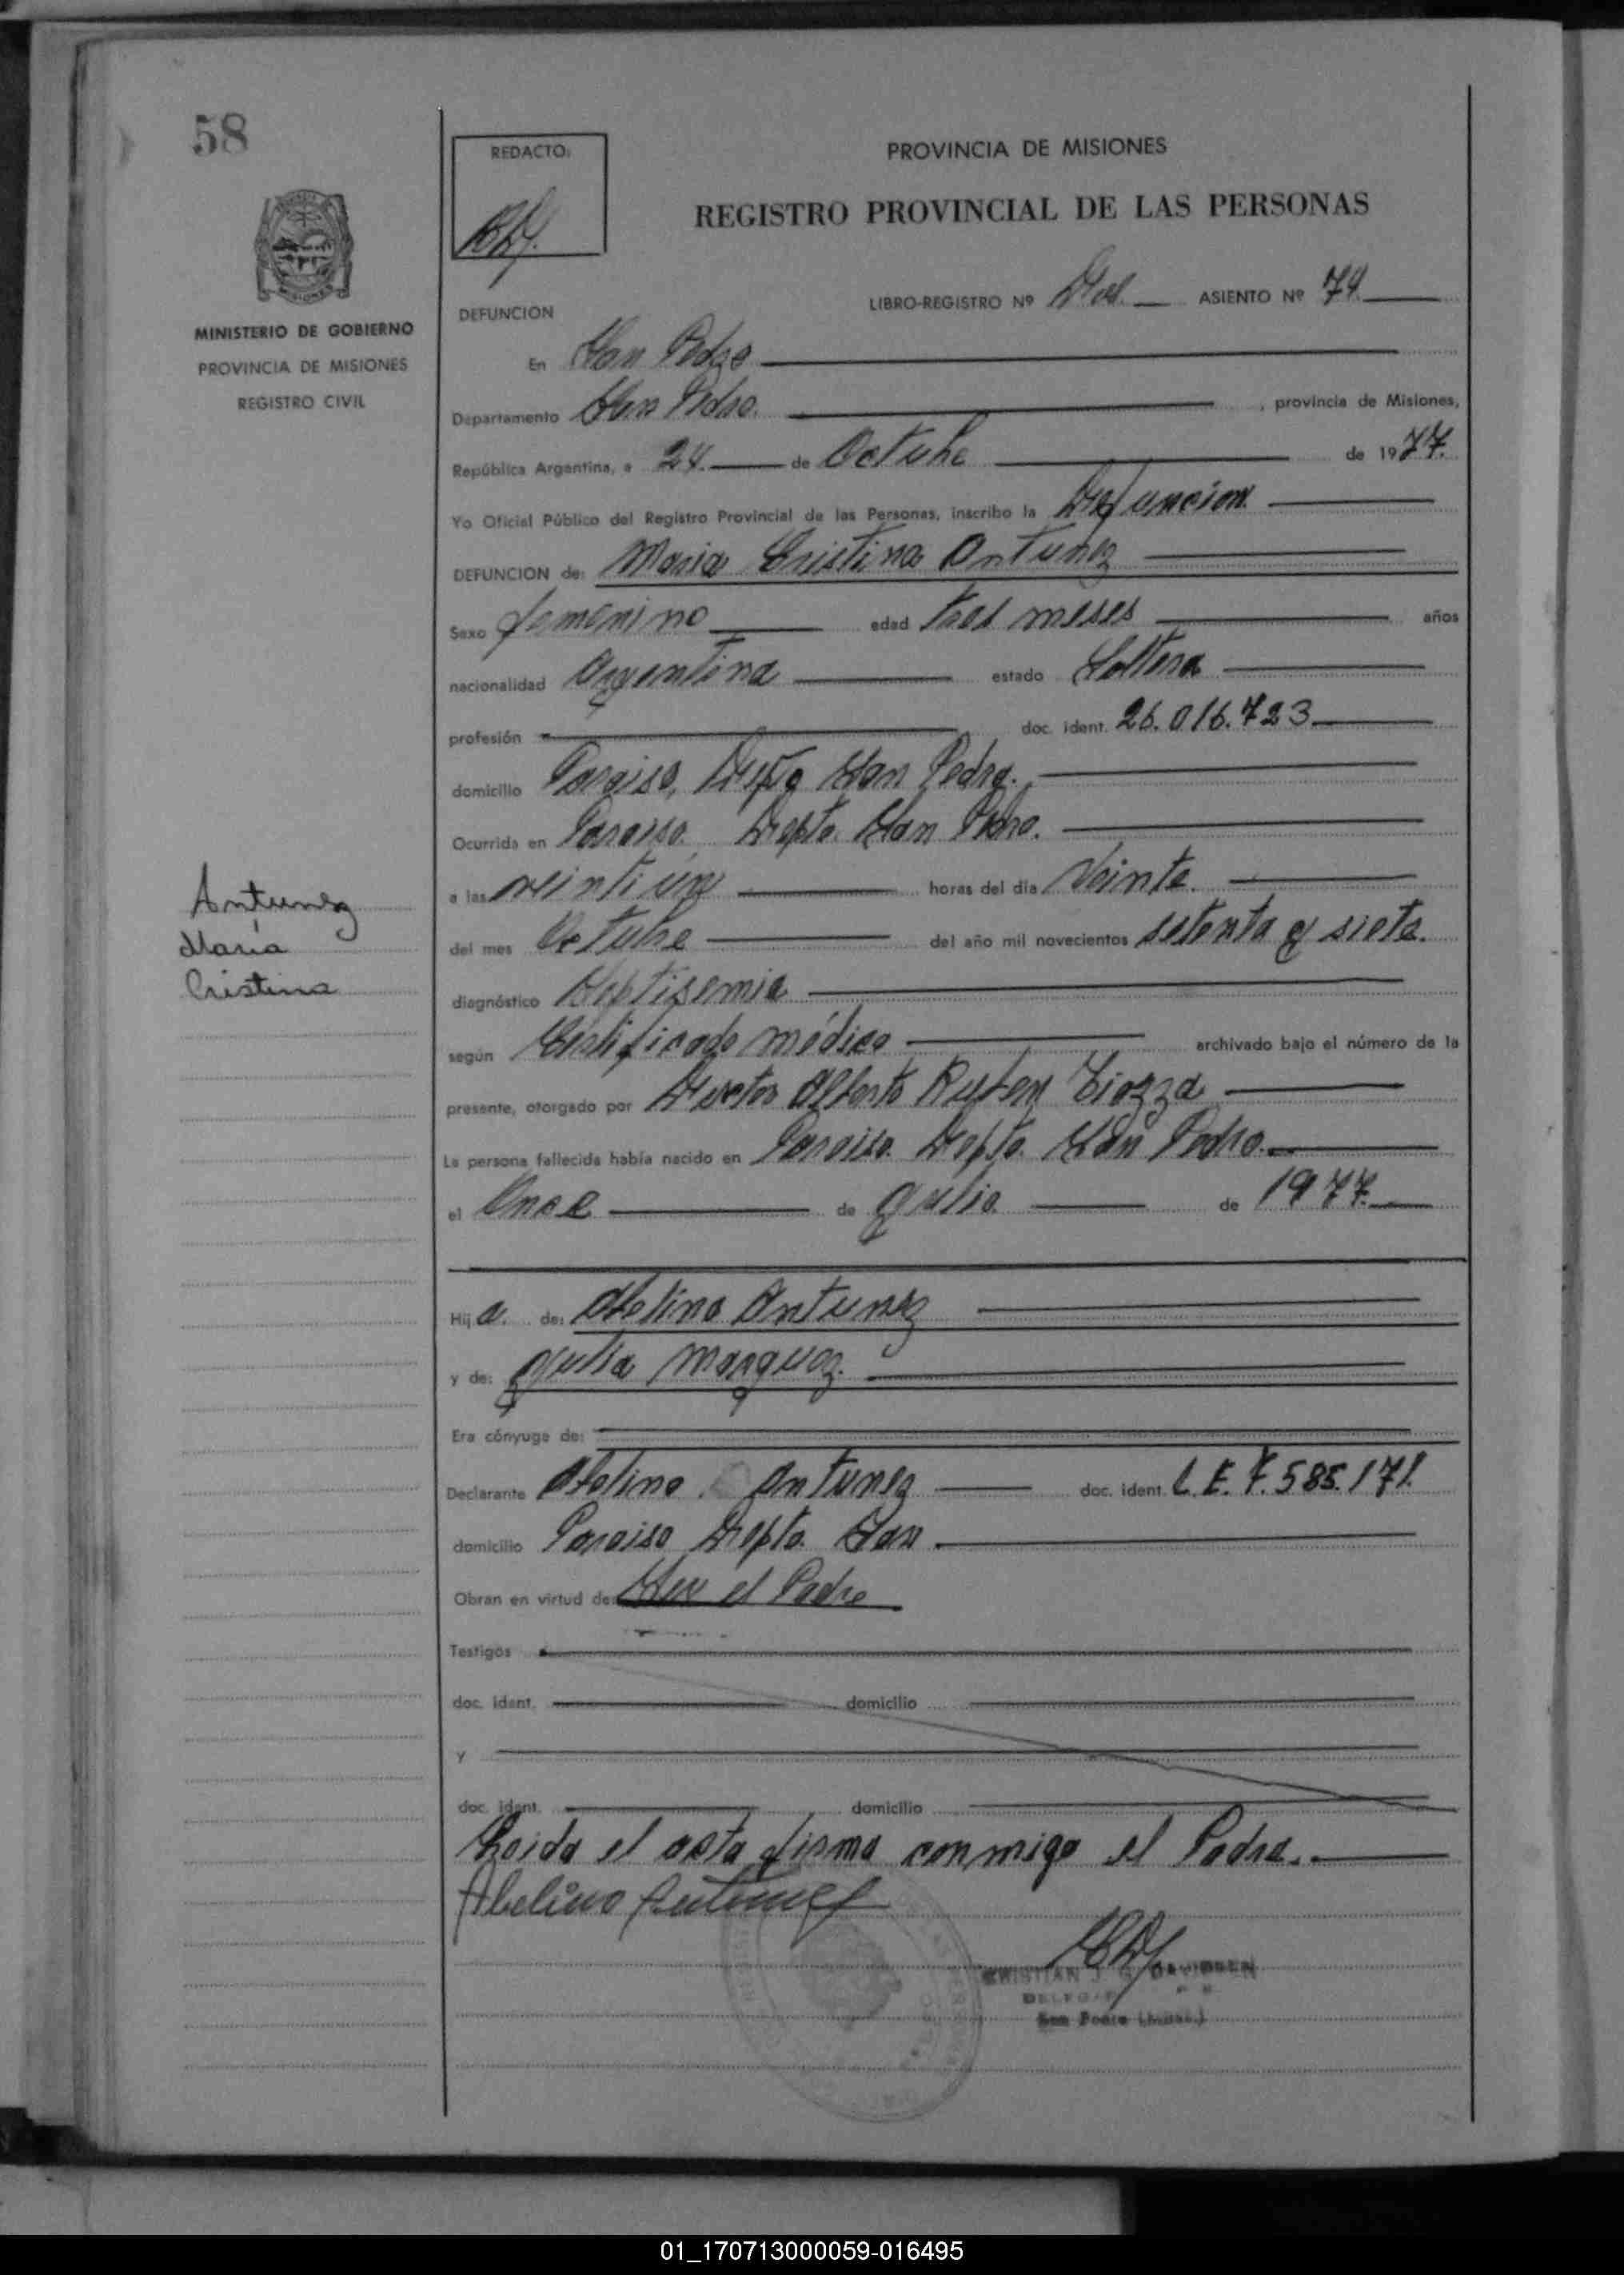 58
REDACTO:
PROVINCIA DE MISIONES
REGISTRO PROVINCIAL DE LAS PERSONAS
MISIONES
MINISTERIO DE GOBIERNO
PROVINCIA DE MISIONES
REGISTRO CIVIL
LIBRO-REGISTRO Nº Dos. ASIENTO Nº 74.
DEFUNCION
En San Pedro
Departamento San Pedro. , provincia de Misiones,
República Argentina, a 24. de Octubre de 1977.
Yo Oficial Público del Registro Provincial de las Personas, inscribo la Defuncion.
DEFUNCION de: Maria Cristina Antunez
Sexo femenino edad tres meses años
nacionalidad Argentina estado Soltera
profesión doc. ident. 26.016.723.
domicilio Paraiso, Depto San Pedro.
Ocurrida en Paraiso. Depto. San Pedro.
a las veintiuna horas del día Veinte.
del mes Octubre del año mil novecientos setenta y siete.
diagnóstico Septisemia
según Certificado médico archivado bajo el número de la
presente, otorgado por Doctor Alberto Ruben
La persona fallecida había nacido en Paraiso. Depto. San Pedro.
el Once de Julio. de 1977.
Antunez
María
Cristina
Hij a. de: Abelino Antunez
y de: Julia Marquez.
Era cónyuge de:
Declarante Abelino Antunez doc. ident. L.E. 7.585.171.
domicilio Paraiso Depto. San.
Obran en virtud de: Ser el Padre
Testigos
doc. ident. domicilio
y
doc. ident. domicilio
Leida el acta firma conmigo el Padre.
Abelino Antunez
CRISTIAN J. G. DAVIDSEN
San Pedro (Mnes.)
01_170713000059-016495